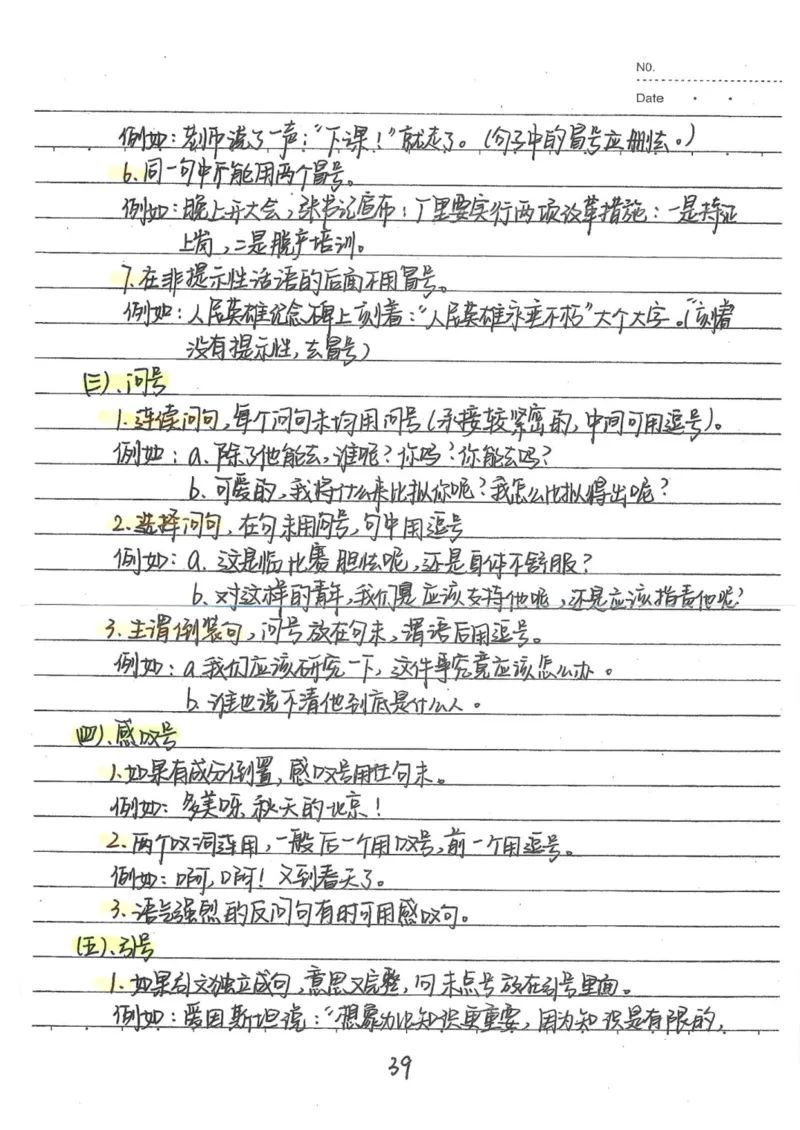 NO.
Date
例如：老师说了一声：“下课！”就走了。（句子中的冒号应删去。）
6.同一句中不能用两个冒号。
例如：晚上开大会，张书记宣布：厂里要实行两项改革措施：一是持证
上岗，二是脱产培训。
7.在非提示性话语的后面不用冒号。
例如：人民英雄纪念碑上刻着：“人民英雄永垂不朽”大个大字。（“刻着
没有提示性，去冒号）
（三）、问号
1.连续问句，每个问句末均用问号（承接较紧密的，中间可用逗号）。
例如：a.除了他能去，谁呢？你吗？你能去吗？
b.可爱的，我将什么来比拟你呢？我怎么比拟得出呢？
2.选择问句，在句末用问号，句中用逗号
例如：a.这是临比赛胆怯呢，还是身体不舒服？
b.对这样的青年，我们是应该支持他呢，还是应该指责他呢？
3.主谓倒装句，问号放在句末，谓语后用逗号。
例如：a我们应该研究一下，这件事究竟应该怎么办。
b.谁也说不清他到底是什么人。
（四）、感叹号
1.如果有成分倒置，感叹号用在句末。
例如：多美呀，秋天的北京！
2.两个叹词连用，一般后一个用叹号，前一个用逗号。
例如：啊，啊！又到春天了。
3.语气强烈的反问句有时可用感叹句。
（五）、引号
1.如果引文独立成句，意思又完整，句末点号放在引号里面。
例如：爱因斯坦说：“想象力比知识更重要，因为知识是有限的，
39